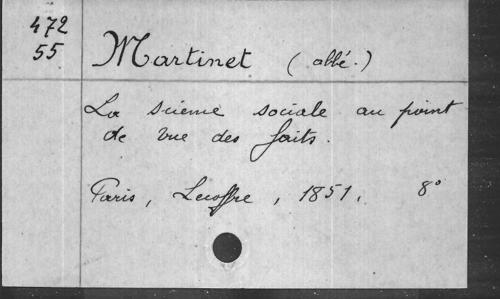 472
55
Martinet (abbé.)
La science sociale au point
de vue des faits.
Paris, Lecoffre, 1851. 8°